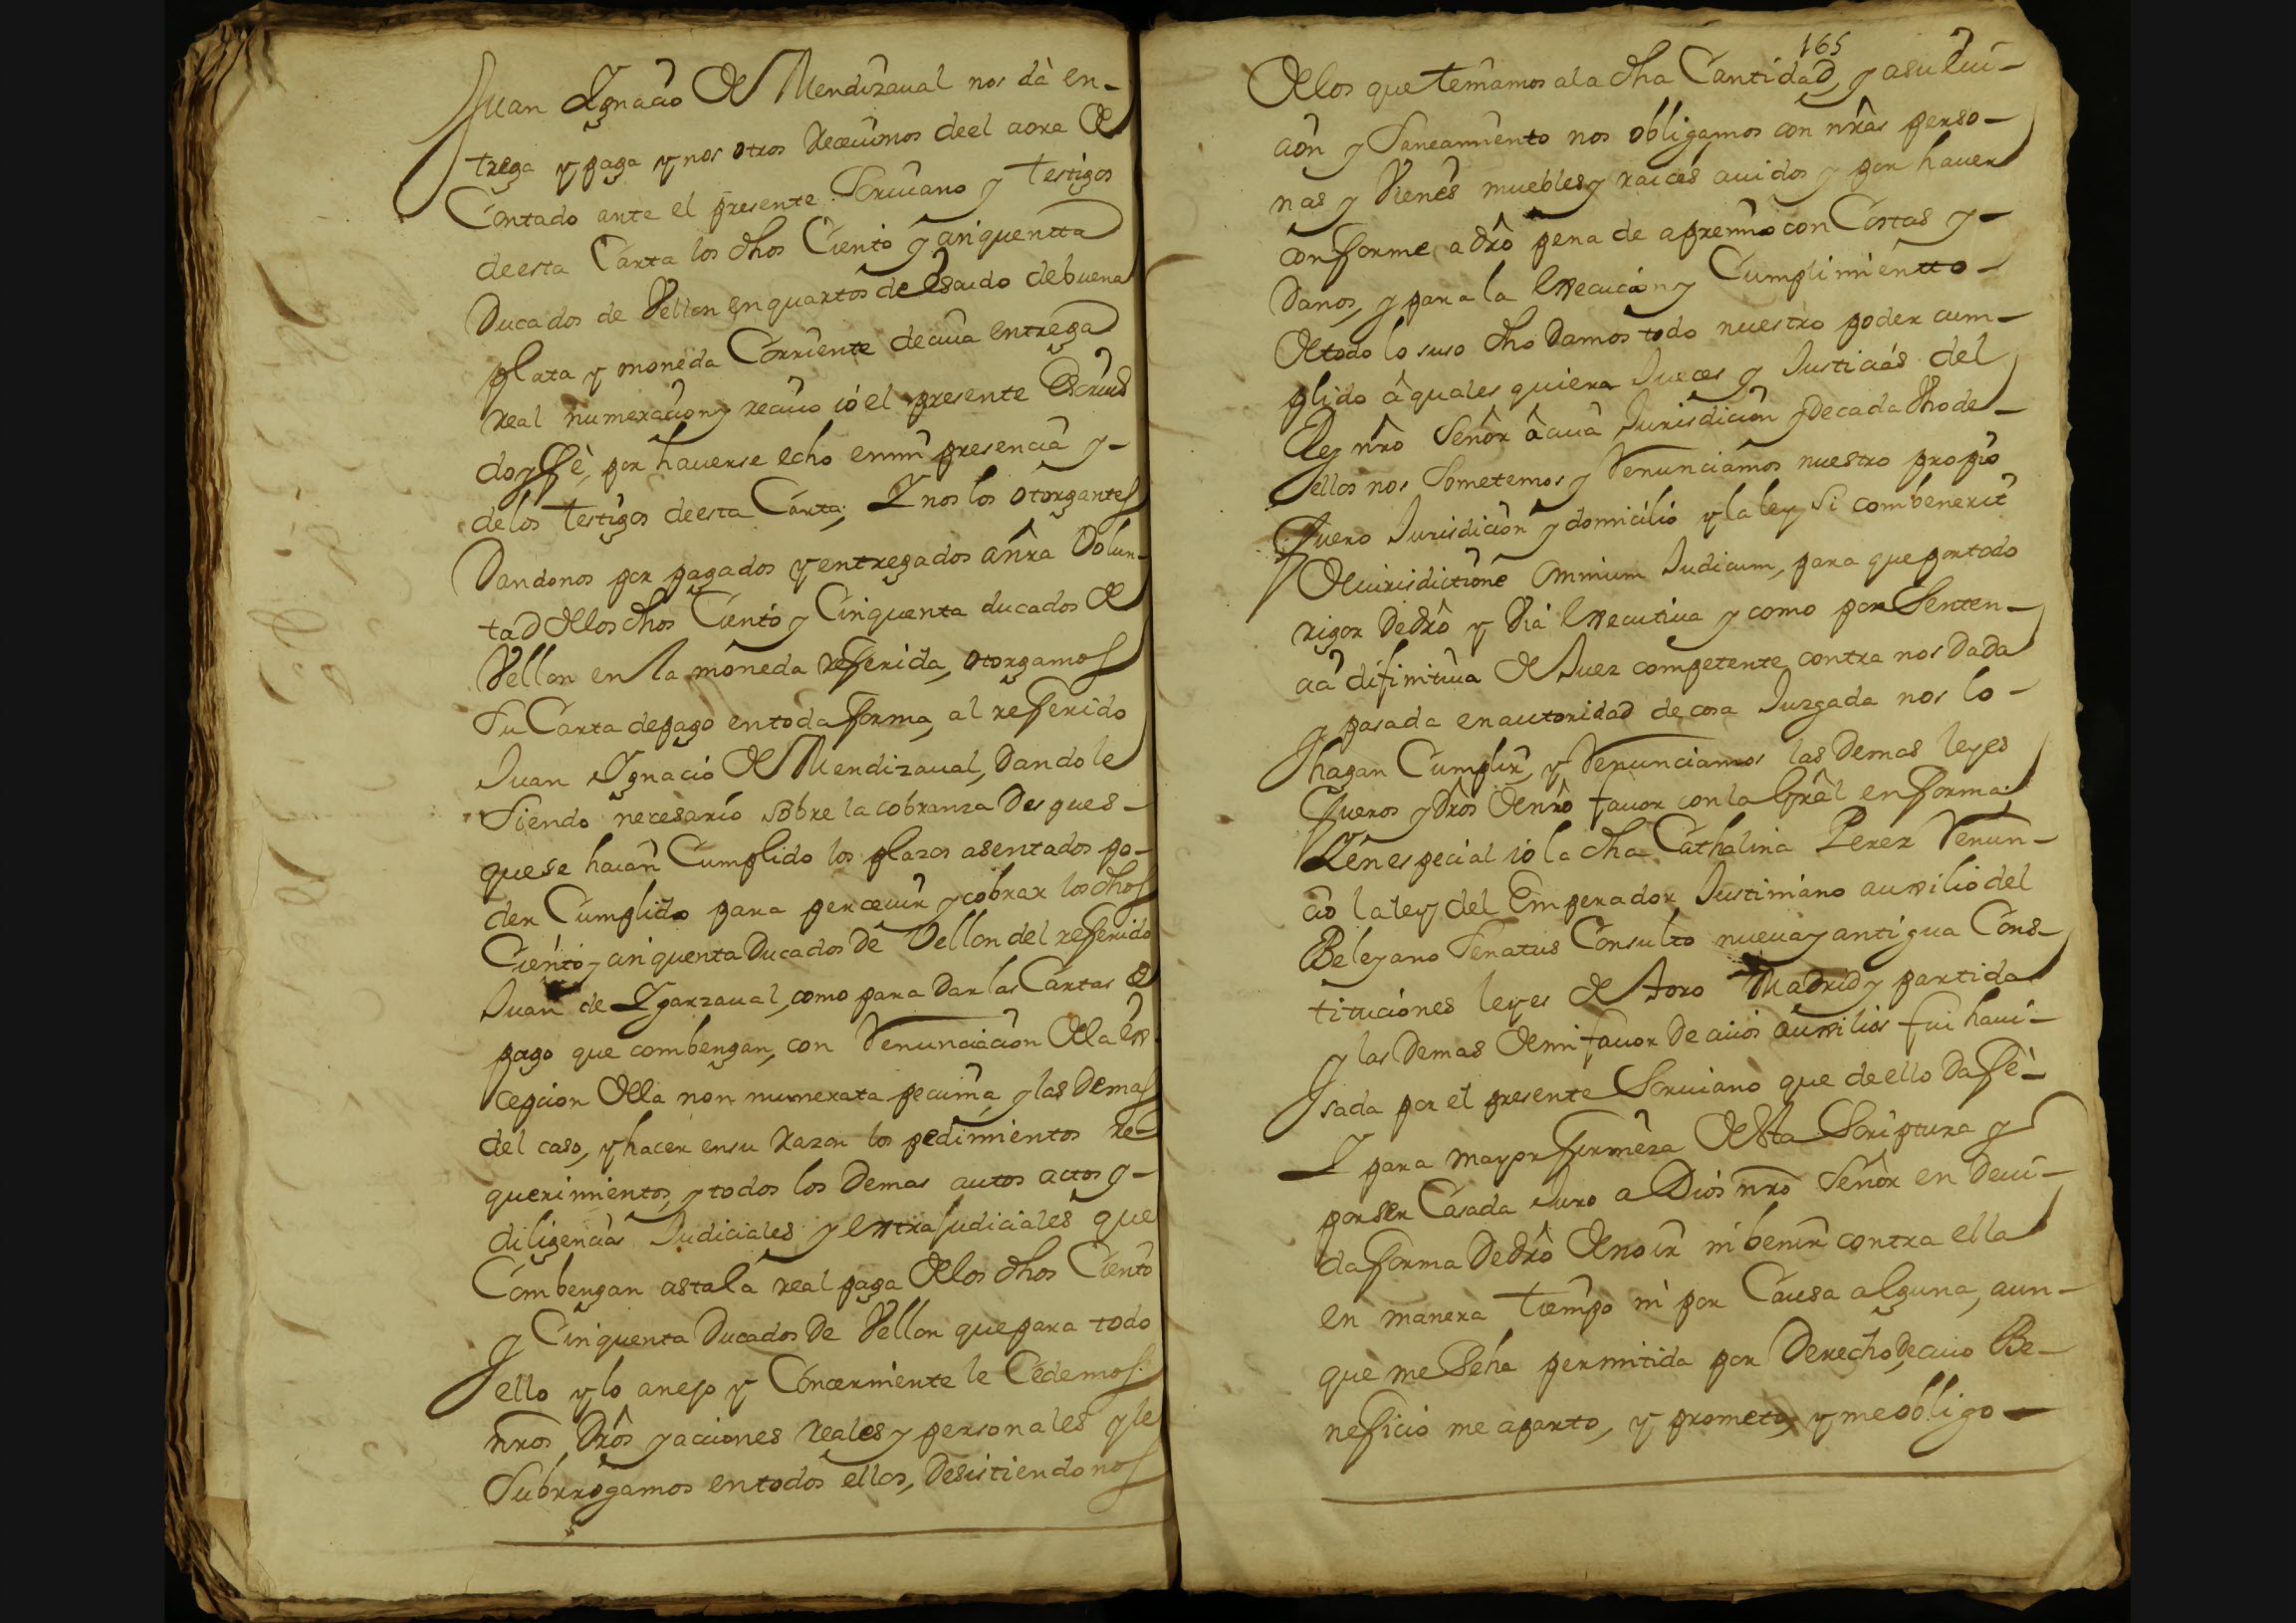 Juan Ygnacio de Mendizaual nos dà en-
trega y paga y nos otros Receuimos deel aora de
Contado ante el presente Scriuano y testigos
deesta Carta los dhos Ciento y cinquentta
Ducados de Vellon en quartos de
plata y moneda Corriente de cuia entrega
real numeracion y reciuo io el presente Escriuo
doy fè, por hauerse echo en mi presencia y-
de los testigos deesta Carta; Y nos los otorgantes
Dandonos por pagados y entregados a nra Volun-
tad de los dhos Ciento y Cinquenta ducados de
Vellon en la moneda referida, otorgamos
Su Carta de pago en toda forma, al referido
Juan Ygnacio de Mendizaual, Dandole
Siendo necesario sobre la cobranza Despues-
que se haian Cumplido los plazos asentados po-
der Cumplido para perceuir y cobrar los dhos
Ciento y cinquenta Ducados De Vellon del referido
Juan de Ygarzaual, como para Dar las Cartas de
pago que combengan, con Renunciacion de la ex
cepcion de la non numerata pecunia, y las Demas
del caso, y hacer en su Razon los pedimientos re-
querimientos, y todos los Demas autos actos y-
diligencias Judiciales y extraJudiciales que
Combengan asta la real paga de los dhos Ciento
y Cinquenta Ducados De Vellon que para todo
ello y lo anejo y Concerniente le Cedemos
nros Dros y acciones reales y personales y le
Subrrogamos en todos ellos, Desistiendonos
165
de los que teniamos a la dha Cantidad, y a su euic-
cion y Saneamiento nos obligamos con nras perso-
nas y Vienes muebles y raices auidos y por hauer
conforme a dro pena de apremio con Costas y-
Danos, y para la execucion y Cumplimientto-
de todo lo suso dho Damos todo nuestro poder cum-
plido à quales quiera Jueces y Justicias del
Rey nro Señor à cuia Jurisdicion y de cada Vno de-
ellos nos Sometemos y Renunciamos nuestro propio
fuero Jurisdicion y domicilio y la ley Si combenerit
de iurisdictione Omnium Judicum, para que por todo
rigor De dro y Via executiua y como por Senten-
cia difinitiua de Juez competente contra nos Dada
y pasada en autoridad de cosa Juzgada nos lo-
hagan Cumplir, y Renunciamos las Demas leyes
fueros y dros de nro fauor con la Gral en forma;
Y en especial io la dha Cathalina Perez Renun-
cio la ley del Emperador Justiniano auxilio del
Beleyano Senatus Consulto nueua y antigua Cons-
tituciones leyes de toro Madrid y partida
y las Demas de mi fauor De cuios auxilios fui haui-
sada por el presente Scriuano que de ello Da fè-
Y para mayor firmeza de sta Scriptura y
por ser Casada Juro a Dios nro Señor en Deui-
da forma De dro de no ir ni benir contra ella
en manera tiempo ni por Causa alguna, aun-
que me Seha permitida por Derecho, De cuio Be-
neficio me aparto, y prometo, y me obligo-